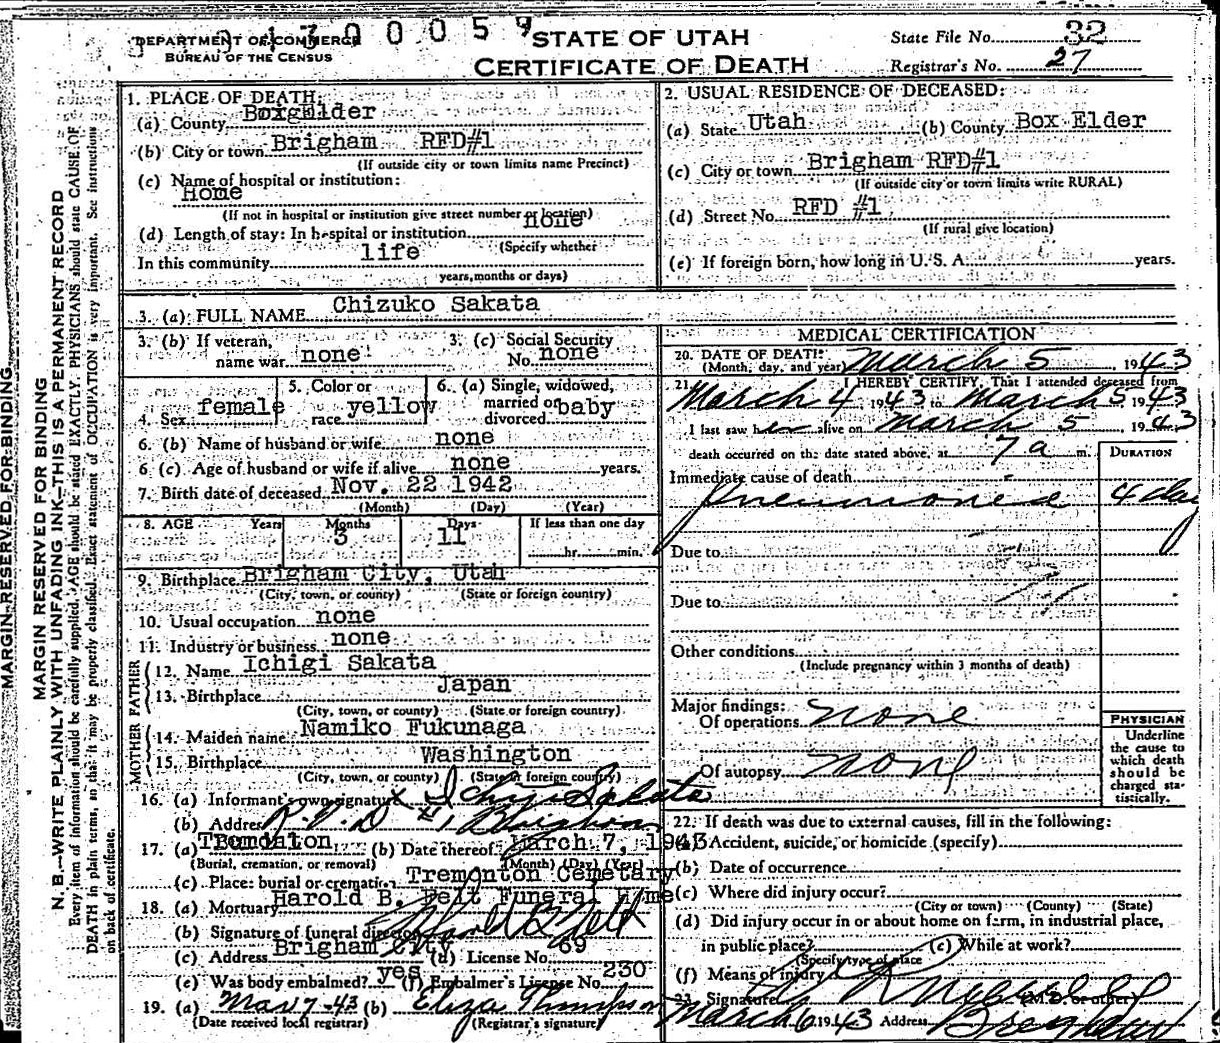 DEPARTMENT OF COMMERCE
BUREAU OF THE CENSUS
STATE OF UTAH
CERTIFICATE OF DEATH
State File No. 32
Registrar's No. 27
1. PLACE OF DEATH:
(a) County BoxgElder
(b) City or town Brigham RFD#1
(If outside city or town limits name Precinct)
(c) Name of hospital or institution:
Home
(If not in hospital or institution give street number or location)
(d) Length of stay: In hospital or institution none
(Specify whether
In this community life
years, months or days)
2. USUAL RESIDENCE OF DECEASED:
(a) State Utah (b) County Box Elder
(c) City or town Brigham RFD#1
(If outside city or town limits write RURAL)
(d) Street No. RFD #1
(If rural give location)
(e) If foreign born, how long in U. S. A. years.
3. (a) FULL NAME Chizuko Sakata
3. (b) If veteran, name war none
3. (c) Social Security No. none
4. Sex female
5. Color or race yellow
6. (a) Single, widowed, married or divorced baby
6. (b) Name of husband or wife none
6 (c) Age of husband or wife if alive none years.
7. Birth date of deceased Nov. 22 1942
(Month) (Day) (Year)
8. AGE Years Months Days If less than one day
3 11 hr. min.
9. Birthplace Brigham City, Utah
(City, town, or county) (State or foreign country)
10. Usual occupation none
11. Industry or business none
FATHER
12. Name Ichigi Sakata
13. Birthplace Japan
(City, town, or county) (State or foreign country)
MOTHER
14. Maiden name Namiko Fukunaga
15. Birthplace Washington
(City, town, or county) (State or foreign country)
16. (a) Informant's own signature Ichigi Sakata
(b) Address R.F.D #1, Brigham
17. (a) (b) Date thereof March 7, 1943
(Burial, cremation, or removal) (Month) (Day) (Year)
(c) Place: burial or cremation Tremonton Cemetary
18. (a) Mortuary Harold B. Felt Funeral Home
(b) Signature of funeral director Harold B Felt
(c) Address Brigham City (d) License No. 69
(e) Was body embalmed? yes (f) Embalmer's License No. 230
19. (a) Mar 7-43 (b) Eliza Thompson
(Date received local registrar) (Registrar's signature)
MEDICAL CERTIFICATION
20. DATE OF DEATH: March 5, 1943
(Month, day, and year)
21. I HEREBY CERTIFY, That I attended deceased from
March 4, 1943 to March 5 1943
I last saw her alive on March 5, 1943
death occurred on the date stated above, at 7 a m.
DURATION
Immediate cause of death
Pneumonia 4 day
Due to
Due to
Other conditions
(Include pregnancy within 3 months of death)
Major findings:
Of operations none
Of autopsy none
PHYSICIAN
Underline
the cause to
which death
should be
charged sta-
tistically.
22. If death was due to external causes, fill in the following:
(a) Accident, suicide, or homicide (specify)
(b) Date of occurrence
(c) Where did injury occur?
(City or town) (County) (State)
(d) Did injury occur in or about home on farm, in industrial place,
in public place? (e) While at work?
(Specify type of place
(f) Means of injury
23. Signature (M.D. or other)
March 6, 1943 Address Brigham
MARGIN RESERVED FOR BINDING
MARGIN RESERVED FOR BINDING
N. B.—WRITE PLAINLY WITH UNFADING INK—THIS IS A PERMANENT RECORD
Every item of information should be carefully supplied. AGE should be stated EXACTLY. PHYSICIANS should state CAUSE OF
DEATH in plain terms, so that it may be properly classified. Exact statement of OCCUPATION is very important. See instructions
on back of certificate.